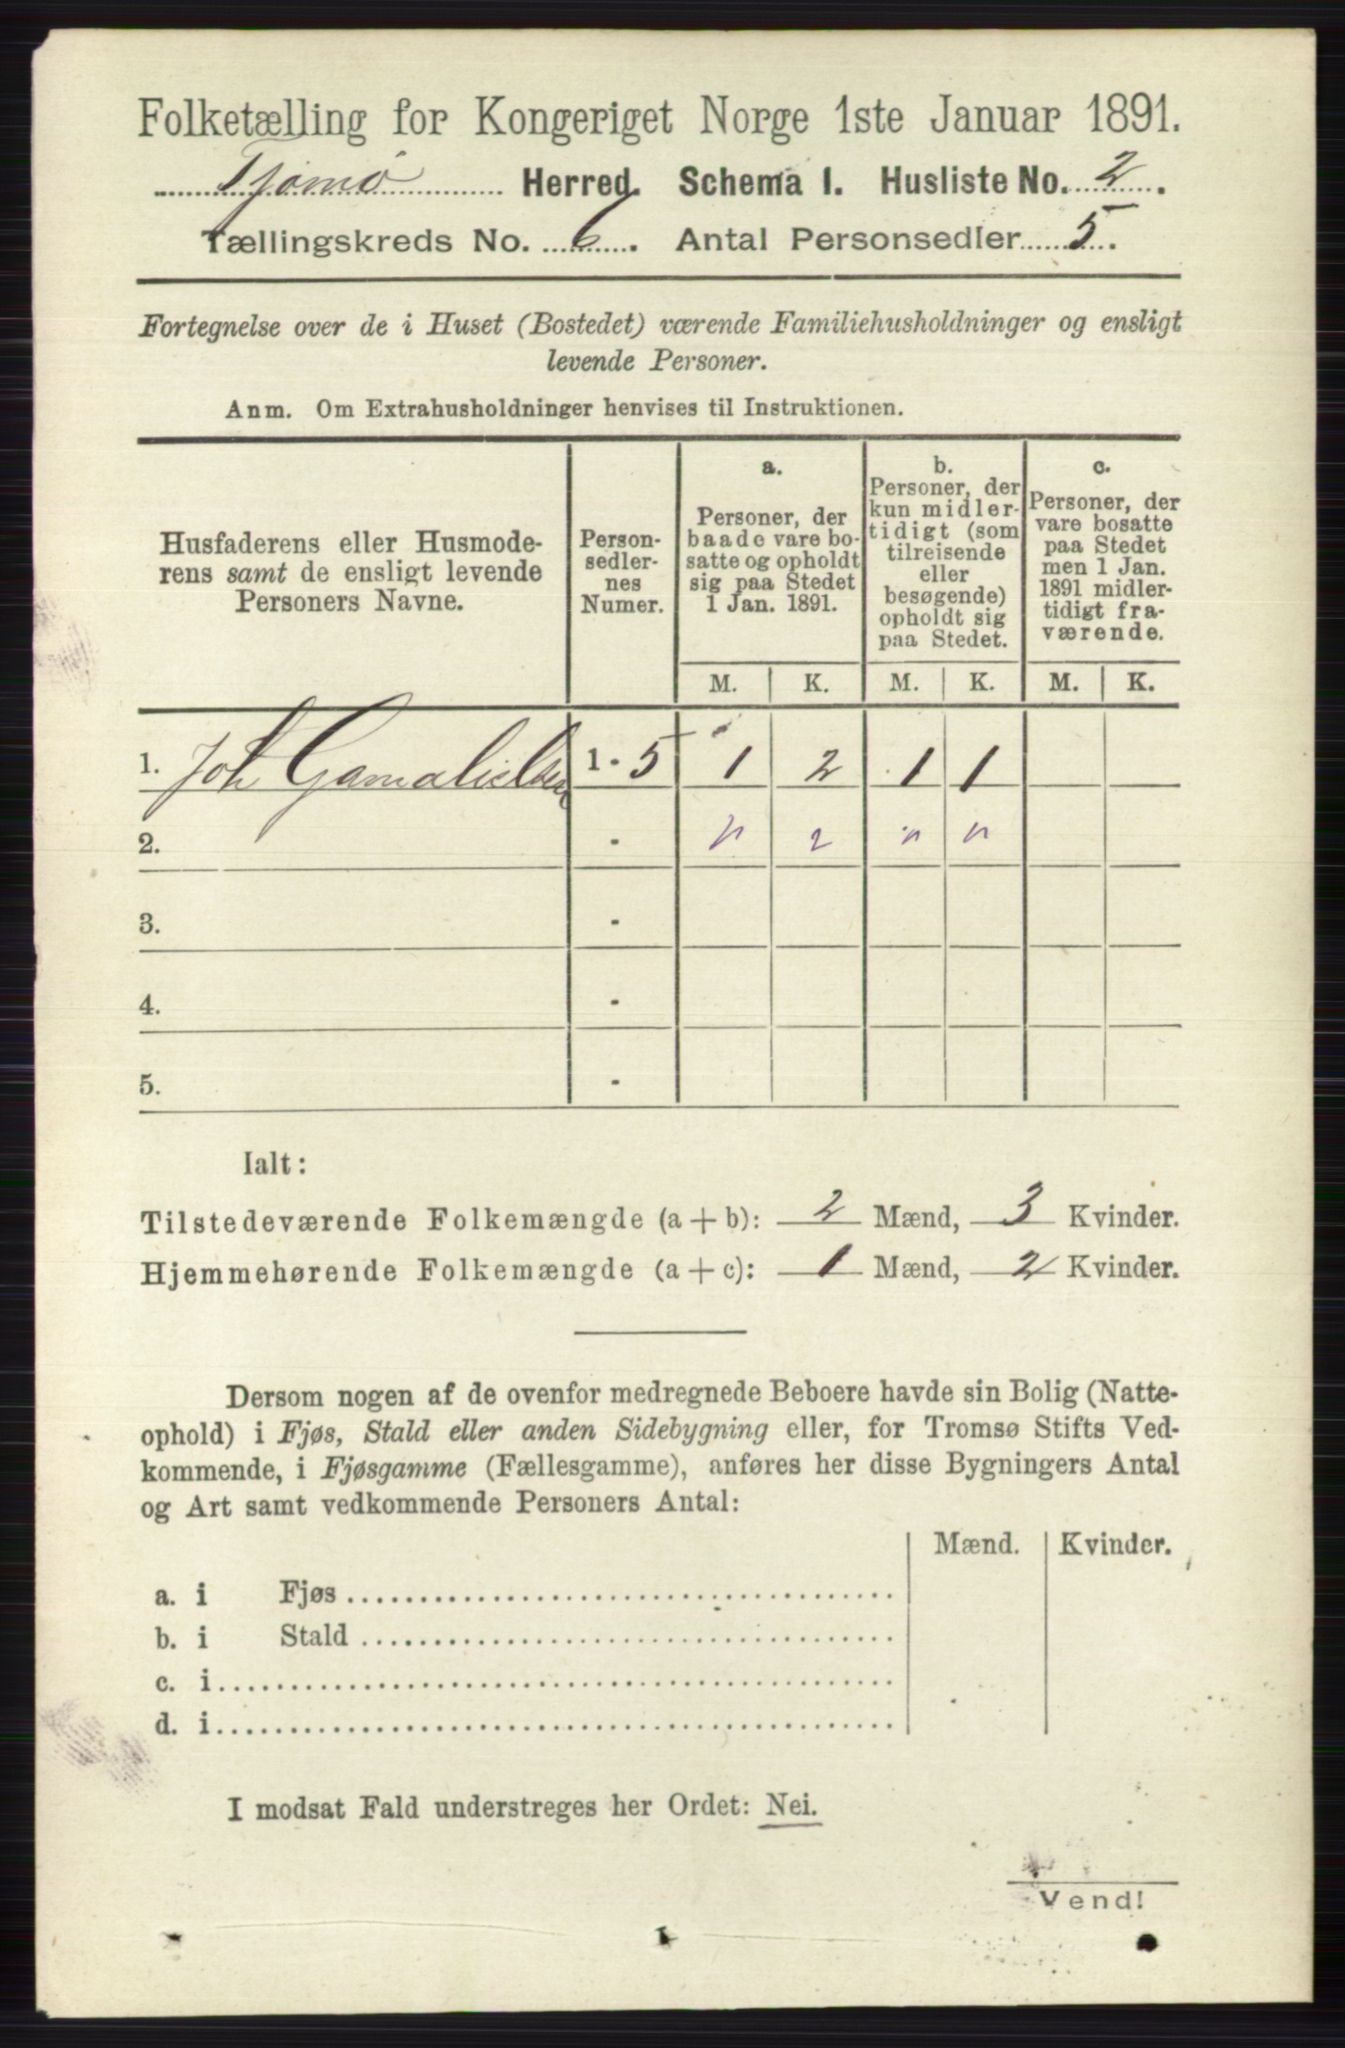 Folketælling for Kongeriget Norge 1ste Januar 1891.
Tjømø Herred. Schema I. Husliste No. 2.
Tællingskreds No. 6. Antal Personsedler 5.
Fortegnelse over de i Huset (Bostedet) værende Familiehusholdninger og ensligt
levende Personer.
Anm. Om Extrahusholdninger henvises til Instruktionen.
Husfaderens eller Husmode-
rens samt de ensligt levende
Personers Navne.
Person-
sedler-
nes
Numer.
a.
Personer, der
baade vare bo-
satte og opholdt
sig paa Stedet
1 Jan. 1891.
b.
Personer, der
kun midler-
tidigt (som
tilreisende
eller
besøgende)
opholdt sig
paa Stedet.
c.
Personer, der
vare bosatte
paa Stedet
men 1 Jan.
1891 midler-
tidigt fra-
værende.
M. K. M. K. M. K.
1. Joh Gamalielsen 1 - 5 1 2 1 1
2. - " 2 " "
3. -
4. -
5. -
Ialt:
Tilstedeværende Folkemængde (a + b): 2 Mænd, 3 Kvinder.
Hjemmehørende Folkemængde (a + c): 1 Mænd, 2 Kvinder.
Dersom nogen af de ovenfor medregnede Beboere havde sin Bolig (Natte-
ophold) i Fjøs, Stald eller anden Sidebygning eller, for Tromsø Stifts Ved-
kommende, i Fjøsgamme (Fællesgamme), anføres her disse Bygningers Antal
og Art samt vedkommende Personers Antal:
Mænd. Kvinder.
a. i Fjøs
b. i Stald
c. i
d. i
I modsat Fald understreges her Ordet: Nei.
Vend!